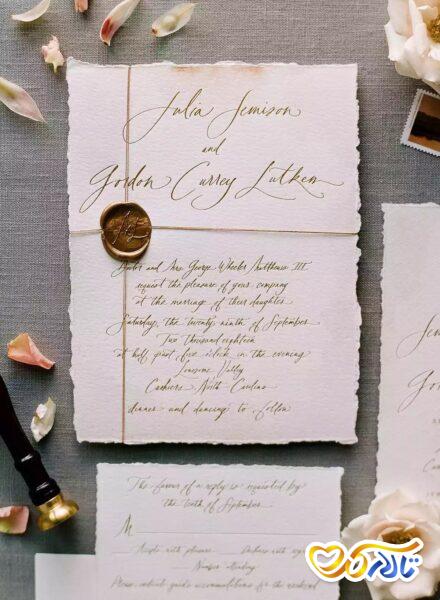 Julia Jemison
and
Gordon Currey Lutken
and Mrs. George Wheeler III
request the pleasure of your company
at the marriage of their daughter
Saturday, the twenty ninth of September
Two thousand eighteen
at half past five o'clock in the evening
Lonesome Valley
Cashiers, North Carolina
dinner and dancing to follow
The favour of a reply is requested by
the tenth of September
M
Accepts with pleasure Declines with
Number Attending
Please indicate guest accommodations for the weekend
تالار کیش